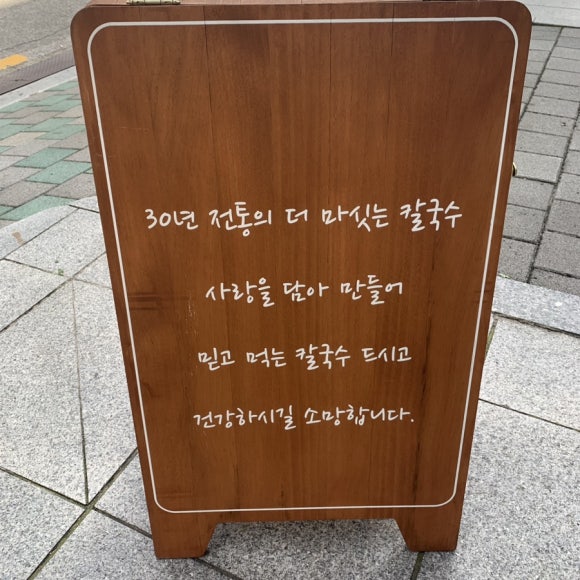 30년 전통의 더 마싯는 칼국수
사랑을 담아 만들어
믿고 먹는 칼국수 드시고
건강하시길 소망합니다.